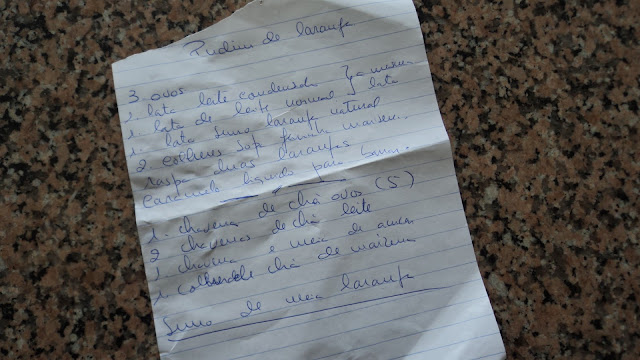 Pudim de laranja
3 ovos
1. lata leite condensado } a mesma
1. lata de leite normal } lata
1. lata sumo laranja natural
2 colheres sopa farinha maizen..
raspa duas laranjas
Caramelo liquido para barrar.
1. chavena de chá ovos (5)
2 chavenas de chá leite
1 chavena e meia de açucar
1. colher de chá de maizena
Sumo de meia laranja